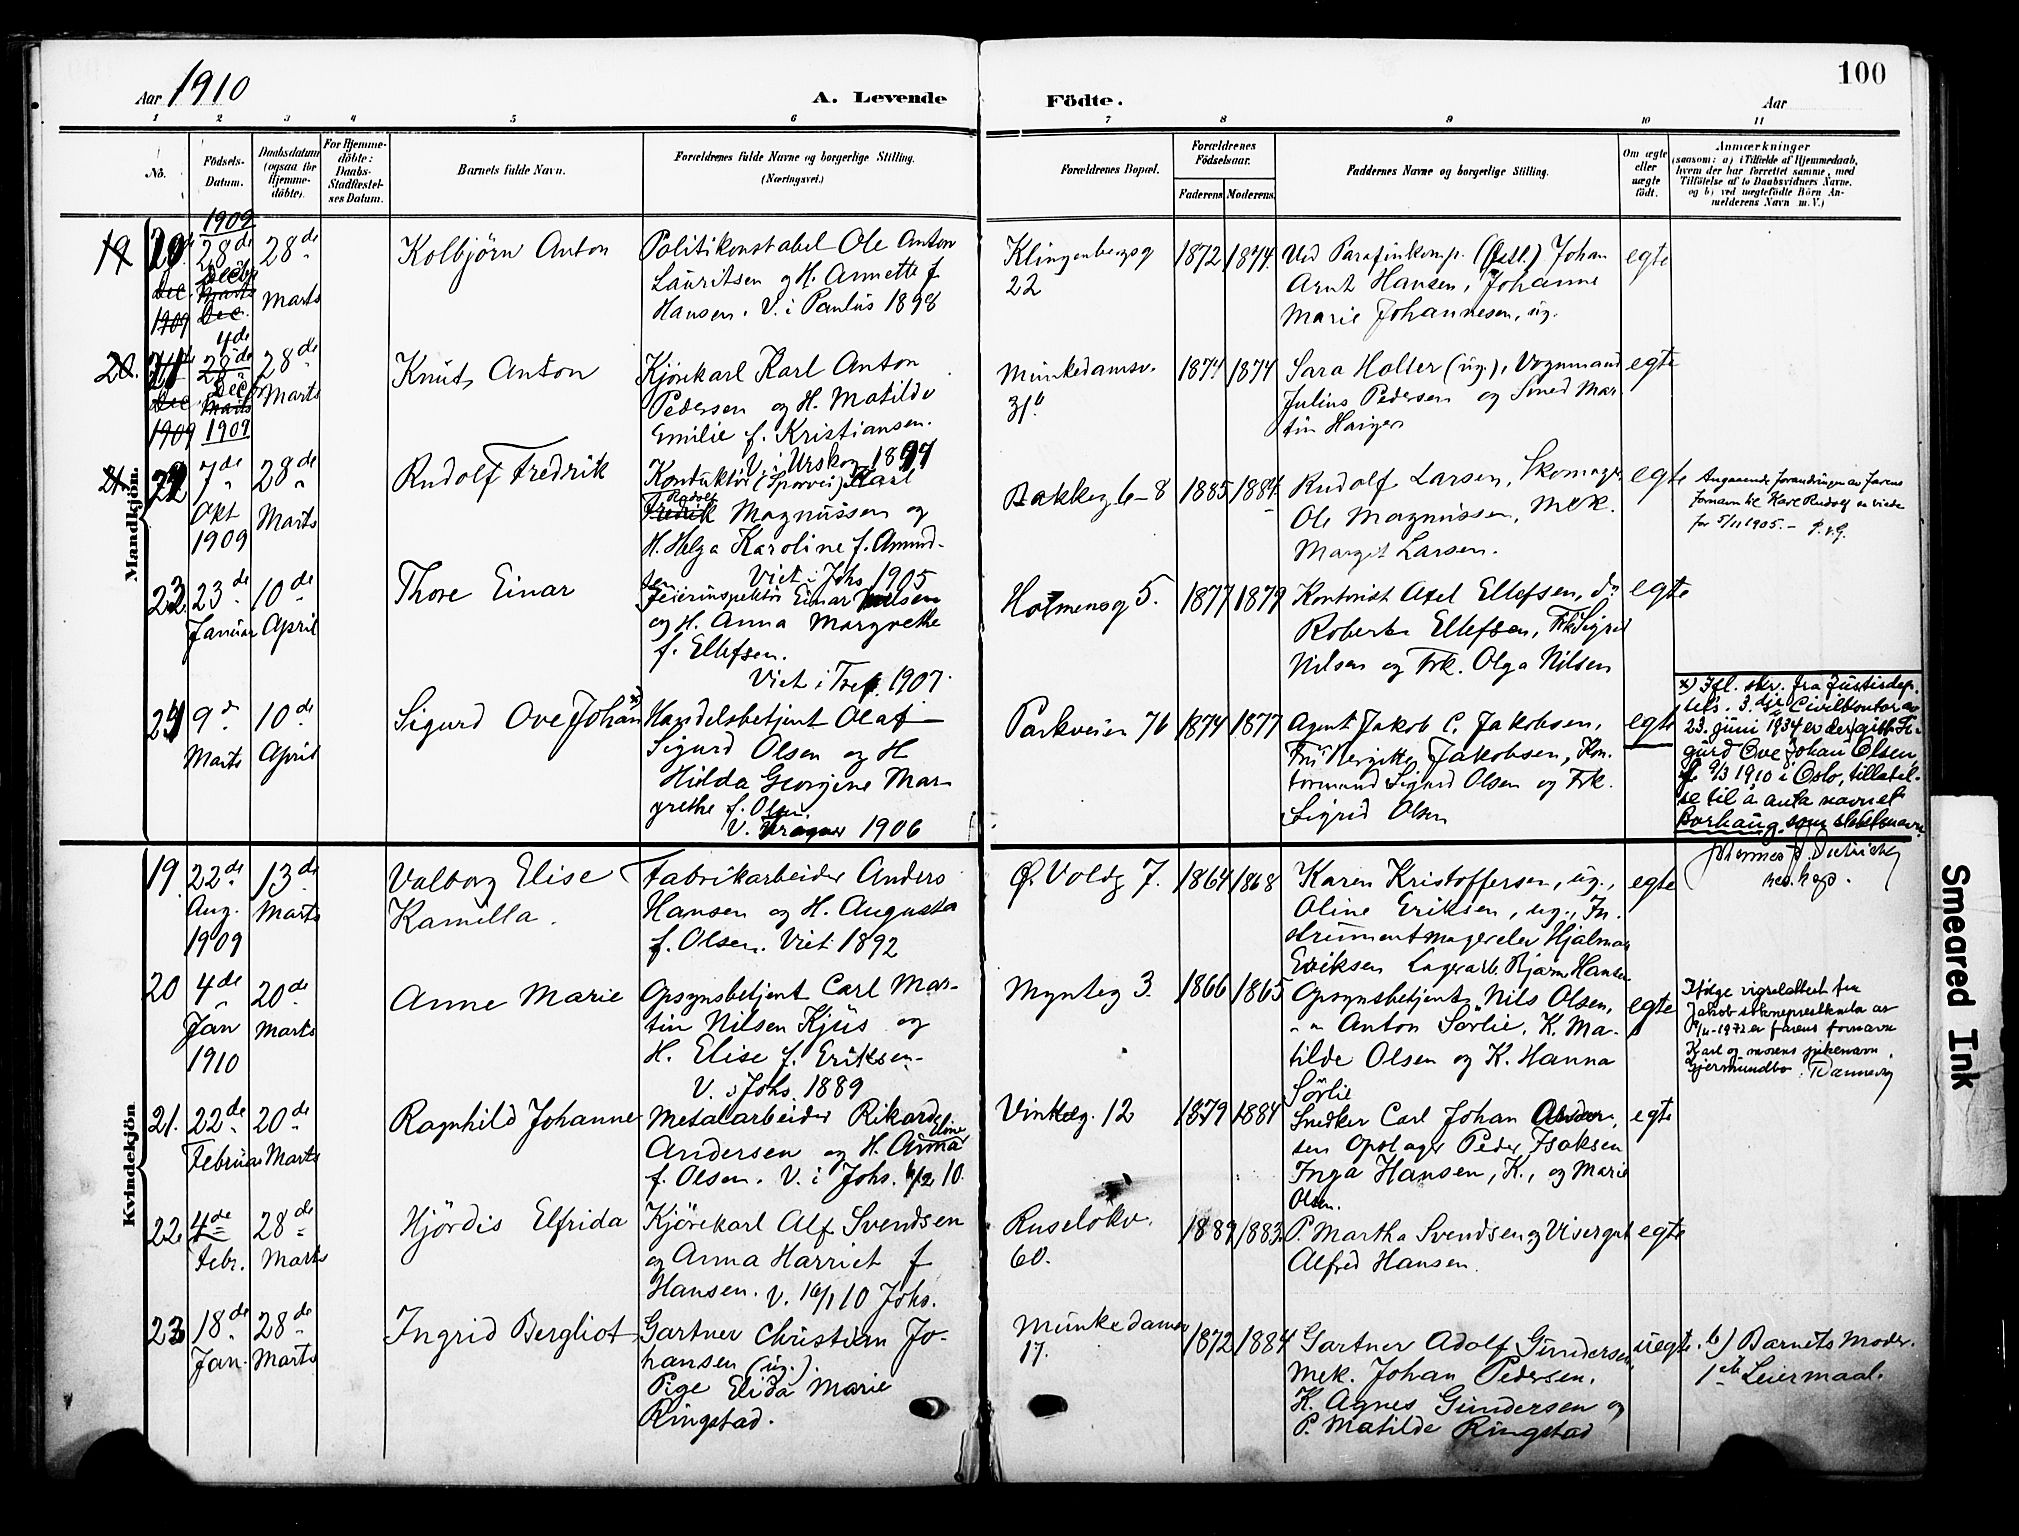 Aar 1910
A. Levende
Födte.
Aar
100
1 2 3 4 5 6 7 8 9 10 11
No.
Födsels-
Datum.
Daabsdatum
(ogsaa for
Hjemme-
döbte).
For Hjemme-
döbte:
Daabs-
Stadfæstel-
ses Datum.
Barnets fulde Navn.
Forældrenes fulde Navne og borgerlige Stilling.
(Næringsvei.)
Forældrenes Bopæl.
Forældrenes
Födselsaar.
Faderens Moderens.
Faddernes Navne og borgerlige Stilling.
Om ægte
eller
uægte
födt.
Anmærkninger
(saasom: a) i Tilfælde af Hjemmedaab,
hvem der har forrettet samme, med
Tilföielse af to Daabsvidners Navne,
og b) ved uægtefödte Börn An-
melderens Navn m. V.)
Mandkjön.
1909
28de
Decbr
28de
Marts
Kolbjörn Anton
Politikonstabel Ole Anton
Lauritsen og H. Annette f
Hansen. V. i Paulus 1898
Klingenbergsg
22
1872 1874.
Ved Parafinkomp. Johan
Arnt Hansen, Johanne
Marie Johannesen, ug.
egte
4de
Decb
1909
28de
Marts
Knut Anton
Kjörekarl Karl Anton
Pedersen og H. Matilde
Emilie f. Kristiansen.
V. i Urskog 1894
Munkedamsv.
31b
1874 1874
Sara Holter (ug.), Vognmand
Julius Pedersen og Smed Mar-
tin
egte
22
7de
Okt
1909
28de
Marts
Rudolf Fredrik
Konduktör (Sporvei) Karl
Rudolf
Fredrik Magnussen og
H. Helga Karoline f. Amund-
sen Viet i Johs 1905
Bakkeg 6-8
1885 1884
Rudolf Larsen, Skomager
Ole Magnussen, Mek.
Margit Larsen.
egte
Angaaende forandringen av farens
fornavn til Karl Rudolf se viede
for 5/11 1905.-
23
23de
Januar
10de
April
Thore Einar
Feierinspektör Einar Nilsen
og H. Anna Margrethe
f. Ellefsen.
Viet i Tref. 1907.
Holmensg 5.
1877 1879
Kontorist Axel Ellefsen, do
Roberts Ellefsen, Frk Sigrid
Nilsen og Frk. Olga Nilsen
egte
24
9de
Marts
10de
April
Sigurd Ove Johan x)
Handelsbetjent Olaf
Sigurd Olsen og H
Hilda Georgine Mar-
grethe f. Olsen.
V. Uranien. 1906
Parkveien 76
1874 1877
Agent Jakob C. Jakobsen,
Fru Bergitte Jakobsen, Kon-
tormand Sigurd Olsen og Frk.
Sigrid Olsen
egte
x) Ifl. skr. fra Justisdep.
tets. 3. dje Civilkontor av
23. juni 1934 er der gitt Si-
gurd Ove Johan Olsen,
f. 9/3 1910 i Oslo, tillatel-
se til å anta navnet
Borhaug som slektsnavn.
Kvindekjön
19.
22de
Aug.
1909
13de
Marts
Valborg Elise
Kamilla.
Fabrikarbeider Anders
Hansen og H. Augusta
f. Olsen. Viet 1892
Ø. Voldg 7.
1864 1868
Karen Kristoffersen, ug.,
Oline Eriksen, ug., In-
strumentmagerelev Hjalmar
Eriksen Lagerarb. Bjarne Hansen
egte
20
4de
Jan
1910
20de
Marts
Anne Marie
Opsynsbetjent Carl Mar-
tin Nilsen Kjus og
H. Elise f. Eriksen-
V. i Johs. 1889
Mynteg 3.
1866 1865
Opsynsbetjent Nils Olsen,
" " Anton Sörlie, K. Ma-
tilde Olsen og K. Hanna
Sörlie
egte
Ifölge vigselattest fra
Jakob sokneprestkontor av
/11-1972 er farens fornavn
Karl og morens pikenavn
Gjermundbo.
21.
22de
Februar
20de
Marts
Ragnhild Johanne
Metalarbeider Rikard
Andersen og H. Anna Oline
f. Olsen. V. i Johs. 6/2 10.
Vinkelg. 12
1879 1884
Snedker Carl Johan Ander-
sen Opslager Peder Isaksen
Inga Hansen, K., og Marie
Olsen.
egte
22.
4de
Febr.
28de
Marts
Hjördis Elfrida
Kjörekarl Alf Svendsen
og Anna Harriet f
Hansen. V. 16/1 10 Johs.
Ruselökv.
60.
1889 1883.
P. Martha Svendsen og Visergut
Alfred Hansen.
egte
23
18de
Jan.
28de
Marts
Ingrid Bergliot
Gartner Christian Jo-
hansen (ug.).
Pige Elida Marie
Ringstad.
Munkedamsv
17.
1872 1884
Gartner Adolf Gundersen,
Mek. Johan Pedersen.
K. Agnes Gundersen og
P. Matilde Ringstad
uegte.
b) Barnets Moder.
1ste Leiermaal.
Smeared Ink